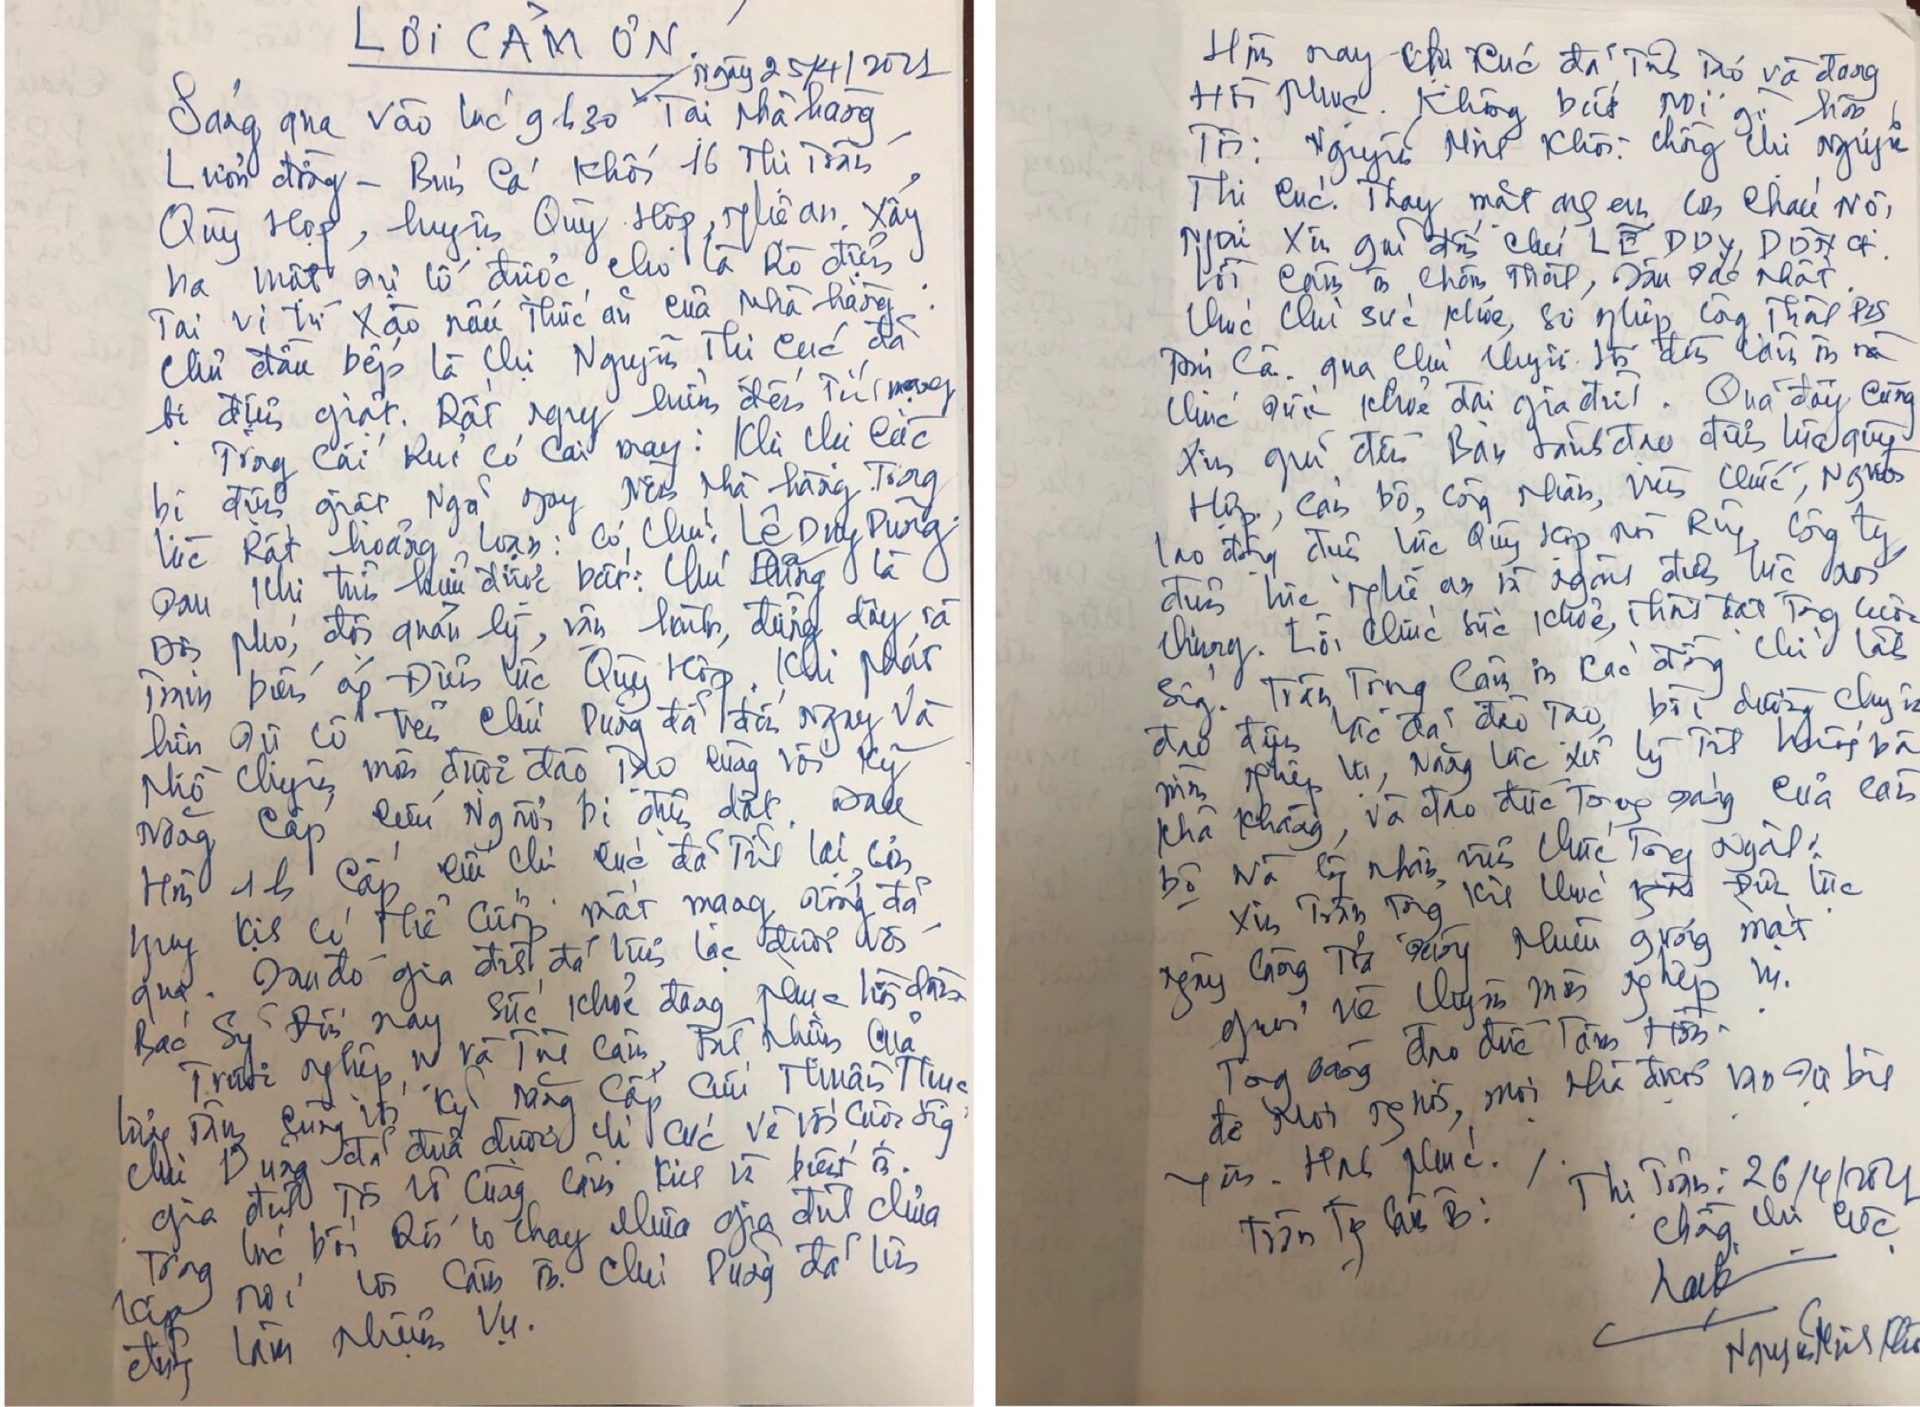 LỜI CẢM ƠN.
Ngày 25/4/2021
Sáng qua vào lúc 9h30 Tại Nhà hàng
Lươn đồng - Bún Cá Khối 16 Thị Trấn,
Quỳ Hợp, huyện Quỳ Hợp, nghệ an. Xảy
ra một sự cố được cho là Rò điện
Tại vị trí xào nấu thức ăn của nhà hàng.
Chủ đầu bếp là chị Nguyễn Thị Cúc đã
bị điện giật. Rất nguy hiểm đến Tính mạng
Trong cái Rủi có cái may: Khi chị Cúc
bị điện giật Ngã ngay nền nhà hàng Trong
lúc Rất hoảng loạn: có chú: Lê Duy Dũng.
Sau khi tìm hiểu được biết: chú Dũng là
Đội phó, đội quản lý, vận hành, đường dây và
Trạm biến áp - Điện lực Quỳ Hợp. Khi phát
hiện sự cố Trên chú Dũng đã đến Ngay và
Nhờ chuyên môn được đào Tạo cùng với Kỹ
Năng Cấp cứu Người bị điện giật. Sau
Hơn 1h Cấp cứu chị Cúc đã Tỉnh lại, còn
nguy kịch có thể Cướp mất mạng sống đã
qua. Sau đó gia đình đã liên lạc được với
Bác Sỹ Đến nay sức khoẻ đang phục hồi dần
Trước nghiệp vụ và Tình cảm, Trách nhiệm của
lương Tâm cùng với kỹ năng cấp cứu Thuần Thục
Chú Dũng đã đưa được chị Cúc về với cuộc sống
gia đình Tôi vô cùng cảm kích và biết ơn.
Trong lúc bối Rối lo chạy chữa gia đình chưa
kịp nói lời cảm ơn. Chú Dũng đã lên
đường làm Nhiệm Vụ.
Hôm nay chị Cúc đã Tỉnh Táo và đang
Hồi Phục. Không biết nói gì hơn
Tôi: Nguyễn Minh Khôi: chồng chị Nguyễn
Thị Cúc. Thay mặt anh em con cháu Nội,
Ngoại Xin gửi đến chú LÊ DUY DŨNG
Lời cảm ơn chân Thành, Sâu sắc nhất.
Chúc Chú sức khỏe, sự nghiệp công Thành
Tất Cả. qua chú chuyển lời đến cảm ơn và
chúc sức khoẻ đại gia đình. Qua đây cũng
Xin gửi đến Ban Lãnh đạo điện lực quỳ
Hợp, cán bộ, công nhân, viên chức, Người
lao động điện lực Quỳ Hợp nói Riêng, Công ty
điện lực nghệ an và ngành điện lực nói
chung. Lời chúc sức khoẻ, Thành đạt Trong cuộc
Sống. Trân Trọng Cảm ơn các đồng chí lãnh
đạo điện lực đã đào Tạo, bồi dưỡng chuyên
môn nghiệp vụ, năng lực xử lý Tình huống bất
khả kháng, và đạo đức Trong sáng của cán
bộ và công nhân, viên chức Trong ngành.
Xin Trân Trọng Kính chúc ngành Điện lực
ngày càng Tỏa sáng Nhiều gương mặt
giỏi về chuyên môn nghiệp vụ.
Trong sáng đạo đức Tâm Hồn.
để Mọi người, mọi nhà được sự bình
yên. Hạnh phúc./.
Trân Trọng Cảm Ơn:
Thị Trấn: 26/4/2021
chồng chị Cúc
Nguyễn Minh Khôi